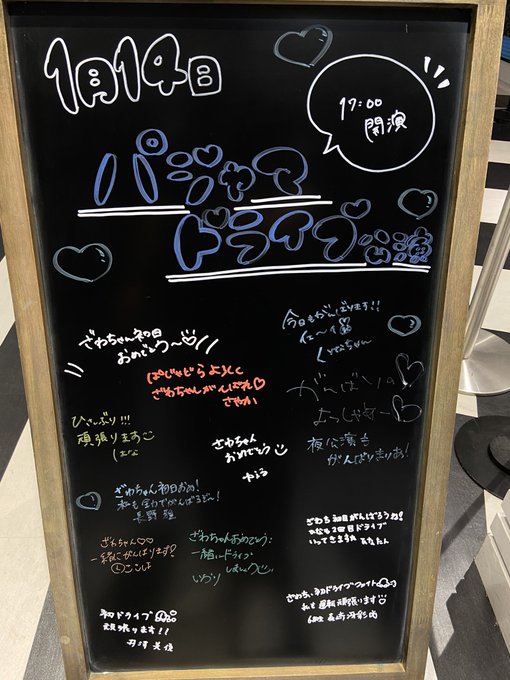 1月14日
17:00
開演
パジャマ
ドライブ公演
ざわちゃん初日
おめでとう〜♡
今日もがんばります!!
ぱじゃどらよろしく
ざわちゃんがんばれ♡
さやか
がんばいの
よっしゃあー♡
ひさしぶり!!!
頑張ります
はな
ざわちゃん
おめでとう
夜公演も
がんばりまりあ!
ざわちゃん初日おめ!
私も全力でがんばるぞー!
長野 雅
ざわちゃん♡♡
一緒にがんばります!
ここよ
ざわちゃんおめでとう!
一緒にドライブ
しましょう
いおり
ざわち初日がんばろうね!
ひなも2回目ドライブ
いってきますね
ざわちぃ初ドライブファイト
私も運転頑張います♡
初ドライブ
頑張ります!!